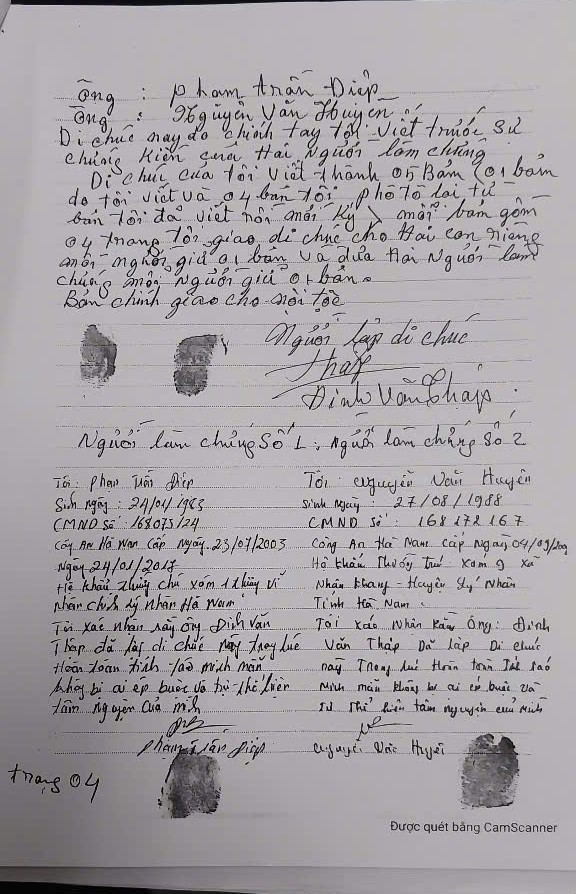 Ông : Phạm Trần Diệp
Ông : Nguyễn Văn Huyên
Di chúc này do chính tay tôi viết trước sự
chứng kiến của Hai Người làm chứng
Di chúc của tôi viết thành 05 Bản (01 bản
do tôi viết và 04 bản tôi phô tô lại từ
bản tôi đã viết rồi mới ký) mỗi bản gồm
04 trang tôi giao di chúc cho Hai con riêng
mỗi người giữ 01 bản và đưa Hai Người làm
chứng mỗi Người giữ 01 bản.
Bản chính giao cho nội tộc
Người lập di chúc
Thấp
Đinh Văn Thấp
Người làm chứng Số 1. Người làm chứng Số 2
Tôi: Phạm Trần Diệp
Sinh ngày: 24/01/1983
CMND Số: 168073124
Công An Hà Nam Cấp Ngày 23/07/2003
Ngày 24/01/2017
Hộ khẩu thường chú xóm 1 thôn
Nhân chính Lý Nhân Hà Nam
Tôi xác nhận rằng ông Đinh Văn
Thấp đã lập di chúc này trong lúc
Hoàn toàn tỉnh táo minh mẫn
không bị ai ép buộc và tự thể hiện
tâm Nguyện của mình
Phạm Trần Diệp
Tôi Nguyễn Văn Huyên
Sinh Ngày: 27/08/1988
CMND Số: 168172167
Công An Hà Nam cấp Ngày 04/09/200
Hộ khẩu Thường Trú xóm 9 xã
Nhân Khang - Huyện Lý Nhân
Tỉnh Hà Nam.
Tôi xác Nhận Rằng Ông: Đinh
Văn Thấp Đã lập Di chúc
này Trong lúc Hoàn toàn Tỉnh táo
Minh mẫn không bị ai ép buộc và
Tự Thể hiện tâm nguyện của Mình
Nguyễn Văn Huyên
Trang 04
Được quét bằng CamScanner